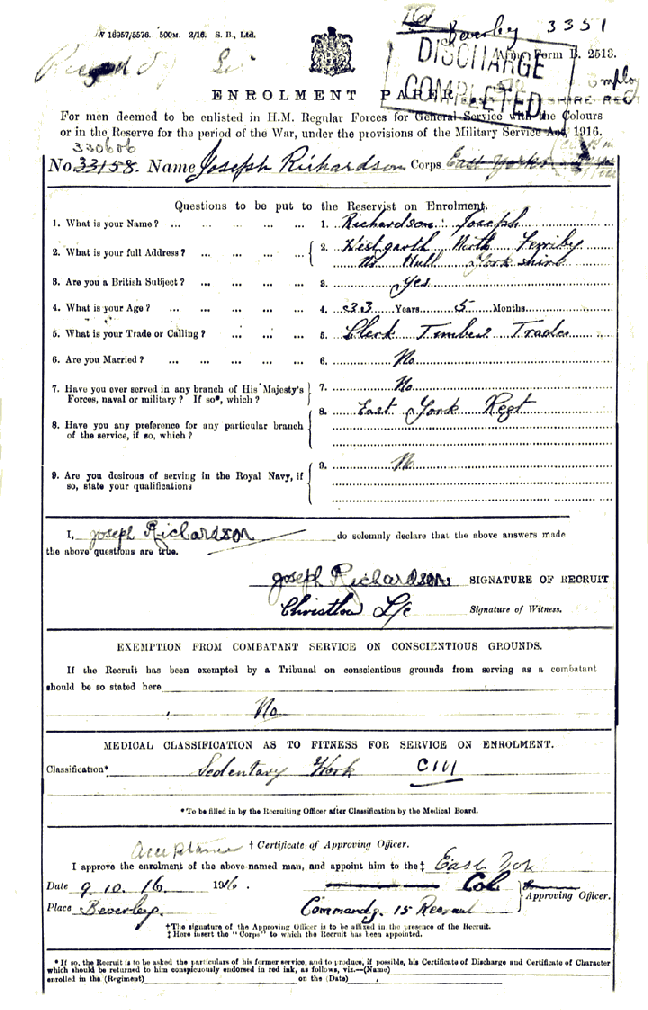 W 16957/5576. 500M. 2/16. S. B., Ltd.
Beverley 3351
Army Form B. 2513.
DISCHARGE
COMPLETED
ENROLMENT PAPER
For men deemed to be enlisted in H.M. Regular Forces for General Service with the Colours
or in the Reserve for the period of the War, under the provisions of the Military Service Act, 1916.
330686
No. 33158. Name Joseph Richardson Corps East Yorks
Questions to be put to the Reservist on Enrolment.
1. What is your Name? ... 1. Richardson: Joseph
2. What is your full Address? ... 2. Westgarth North Ferriby
Nr Hull Yorkshire
3. Are you a British Subject? ... 3. Yes
4. What is your Age? ... 4. 33 Years 5 Months.
5. What is your Trade or Calling? ... 5. Clerk Timber Trade
6. Are you Married? ... 6. No
7. Have you ever served in any branch of His Majesty's 7. No
Forces, naval or military? If so*, which?
8. East York Regt
8. Have you any preference for any particular branch
of the service, if so, which?
9. No
9. Are you desirous of serving in the Royal Navy, if
so, state your qualifications
I, Joseph Richardson do solemnly declare that the above answers made
the above questions are true.
Joseph Richardson, SIGNATURE OF RECRUIT
L/c Signature of Witness.
EXEMPTION FROM COMBATANT SERVICE ON CONSCIENTIOUS GROUNDS.
If the Recruit has been exempted by a Tribunal on conscientious grounds from serving as a combatant
should be so stated here
No
MEDICAL CLASSIFICATION AS TO FITNESS FOR SERVICE ON ENROLMENT.
Classification* Sedentary Work C III
* To be filled in by the Recruiting Officer after Classification by the Medical Board.
acceptance † Certificate of Approving Officer.
I approve the enrolment of the above-named man, and appoint him to the ‡ East York
Date 9.10.16 1916. Col. Approving Officer.
Place Beverley. Commandg. 15 Recruit
†The signature of the Approving Officer is to be affixed in the presence of the Recruit.
‡Here insert the "Corps" to which the Recruit has been appointed.
* If so, the Recruit is to be asked the particulars of his former service, and to produce, if possible, his Certificate of Discharge and Certificate of Character
which should be returned to him conspicuously endorsed in red ink, as follows, viz.—(Name)
enrolled in the (Regiment) on the (Date)